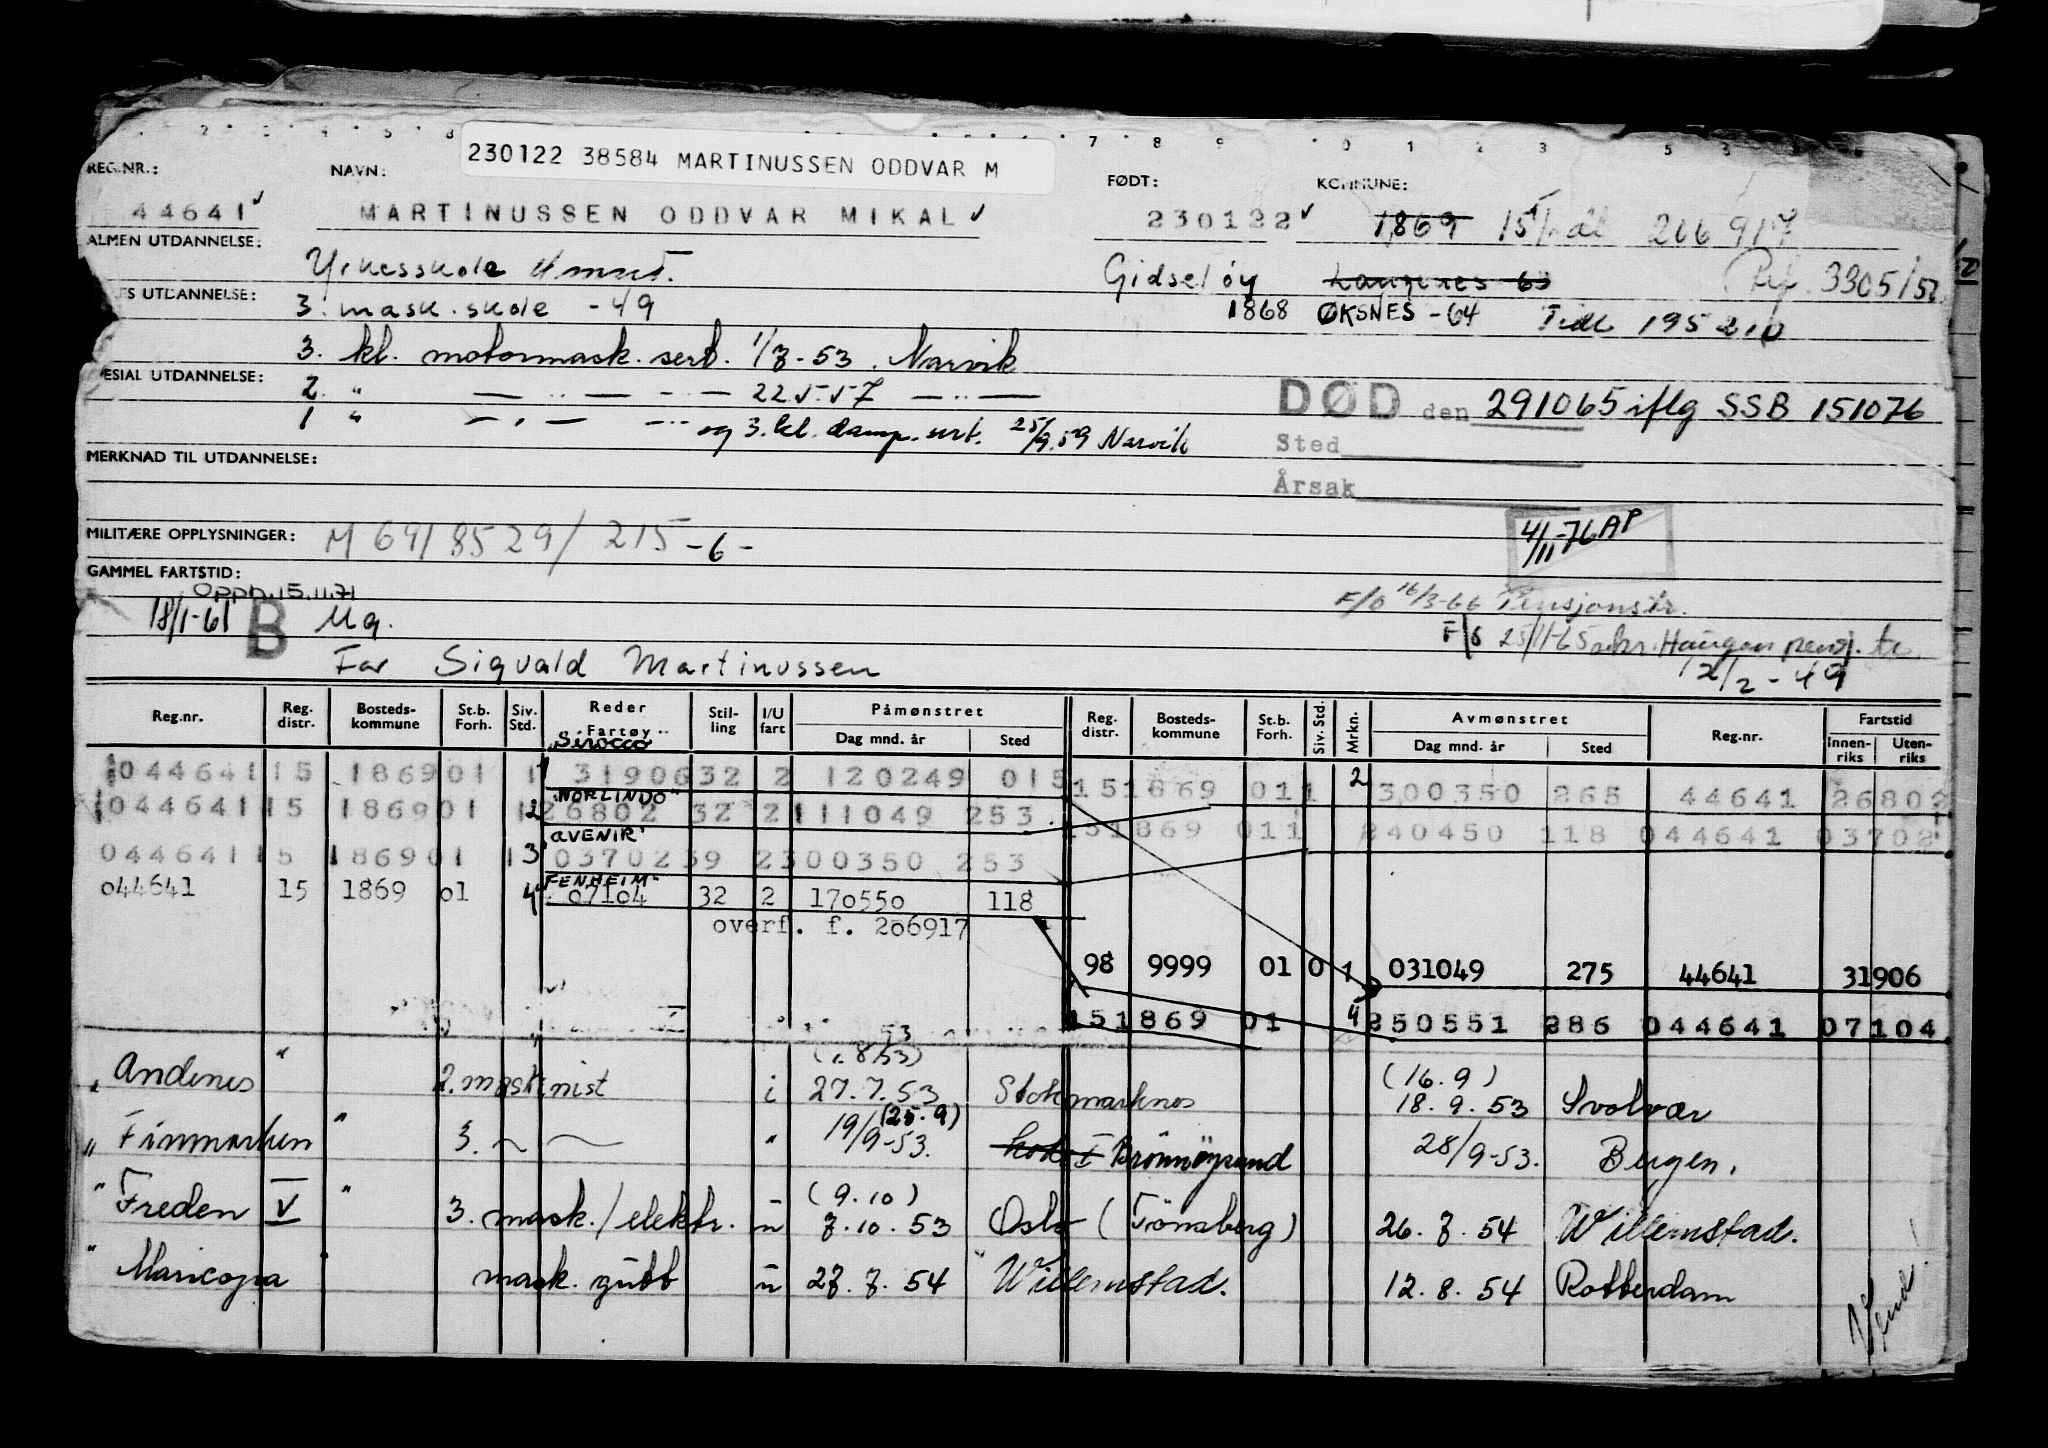 230122 38584 MARTINUSSEN ODDVAR M
REG.NR.: NAVN: FØDT: KOMMUNE:
44641 MARTINUSSEN ODDVAR MIKAL 230122 1869 206917
ALMEN UTDANNELSE: Yrkesskole 4 mnd. Gidseløy Langenes 63 3305/57
UTDANNELSE: 3. mask. skole -49 1868 ØKSNES -64 Tidl 195210
3. kl. motormask. sert. 1/7-53. Narvik
SPESIAL UTDANNELSE: 2. " — " — " — 22.5.57 — " —
DØD den 291065 iflg SSB 151076
1 " — " — " og 3. kl. damp. sert. 25/9.59 Narvik
Sted
MERKNAD TIL UTDANNELSE:
Årsak
MILITÆRE OPPLYSNINGER: M 691 8529/215 -6-
4/11-76 AP
GAMMEL FARTSTID:
Oppb. 15.11.71
F/O 16/3-66 Pensjonstr.
18/1-61 B Ug.
F/O 25/11-65 Haugen pensj. tr.
Far Sigvald Martinussen 12/2-49
Reg.nr. Reg. distr. Bosteds-kommune St.b. Forh. Siv. Std. Reder Fartøy Stil-ling I/U fart Påmønstret Dag mnd. år Sted Reg. distr. Bosteds-kommune St.b. Forh. Siv. Std. Mrkn. Avmønstret Dag mnd. år Sted Reg.nr. Fartstid Innen-riks Uten-riks
"Sirocco"
044641 15 1869 01 1 1 31906 32 2 120249 015 15 1869 01 1 2 300350 265 44641 26802
"NORLINDO"
044641 15 1869 01 1 2 26802 32 2 111049 253 15 1869 01 1 240450 118 044641 03702
"AVENIR"
044641 15 1869 01 1 3 03702 39 2 300350 253
"FENHEIM"
044641 15 1869 01 4 07104 32 2 170550 118
overf. f. 206917
98 9999 01 0 1 031049 275 44641 31906
15 1869 01 4 250551 286 044641 07104
" Andenes " 2. maskinist i 27.7.53 Stokmarknes (16.9) 18.9.53 Svolvær
" Finmarken " 3. — " 19/9-53. (25.9) Brönnöysund 28/9-53. Bergen.
" Freden V " 3. mask./elektr. u (9.10) 7.10.53 Oslo (Tönsberg) 26.7.54 Willemstad.
" Maricopa " mask. gutt u 27.7.54 Willemstad. 12.8.54 Rotterdam
Vend!